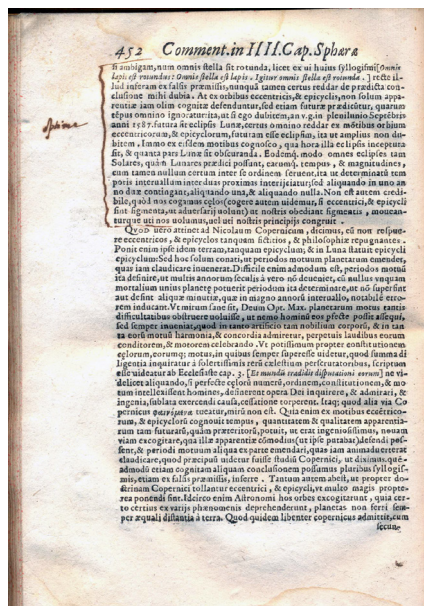 452 Comment. in IIII. Cap. Sphæræ
si ambigam, num omnis stella sit rotunda, licet ex ui huius syllogismi [Omnis
lapis est rotundus: Omnis stella est lapis. Igitur omnis stella est rotunda.] recte il-
lud inferam ex falsis præmissis, nunquã tamen certus reddar de prædicta con-
clusione mihi dubia. At ex orbibus eccentricis, & epicyclis, non solum appa-
rentiæ iam olim cognitæ defenduntur, sed etiam futuræ prædicũtur, quarum
tẽpus omnino ignoratur: ita, ut si ego dubitem, an v.g. in plenilunio Septẽbris
anni 1587. futura sit eclipsis Lunæ, certus omnino reddar ex motibus orbium
eccentricorum, & epicyclorum, futuram esse eclipsim, ita ut amplius non du-
bitem, Immo ex eisdem motibus cognosco, qua hora illa eclipsis inceptura
sit, & quanta pars Lunæ sit obscuranda. Eodemq. modo omnes eclipses tam
Solares, quàm Lunares prædici possunt, earumq. tempus, & magnitudines,
cum tamen nullum certum inter se ordinem seruent, ita ut determinatũ tem
poris interuallum inter duas proximas interijciatur, sed aliquando in uno an
no duæ contingant, aliquando una, & aliquando nulla. Non est autem credi-
bile, quòd nos cogamus cælos (cogere autem uidemur, si eccentrici, & epicycli
sint figmenta, ut aduersarij uolunt) ut nostris obediant figmentis, mouean-
turque uti nos uolumus, uel uti nostris principijs congruit.
sphæra
QVOD uero attinet ad Nicolaum Copernicum, dicimus, eũ non respu-
ere eccentricos, & epicyclos tanquam fictitios, & philosophiæ repugnantes.
Ponit enim ipse idem terram, tanquam epicyclum; & in Luna statuit epicycli
epicyclum: Sed hoc solum conati, ut periodos motuum planetarum emendet,
quas iam claudicare inuenerat. Difficile enim admodum est, periodos motuũ
ita definire, ut multis annorum seculis à vero nõ deueniet, cũ nullus vnquam
mortalium unius planetę potuerit periodum ita determinare, ut nõ supersint
aut desint aliquæ minutiæ, quæ in magno annorũ interuallo, notabilẽ erro-
rem inducant. Vt mirum sane sit, Deum Opt. Max. planetarum motus tantis
difficultatibus obstruere uoluisse, ut nemo hominũ eos pfecte posse assequi,
sed semper inueniat, quod in tanto artificio tam nobilium corporũ, & in tan
ta eorũ motuũ harmonia, & concordia admiretur, perpetuis laudibus eorum
conditorem, & motorem celebrando. Vt potissimum propter constitutionem
cęlorum, eorumq; motus, in quibus semper superesse uidetur, quod summa di
ligentia inquiratur à solertissimis rerũ cælestium perscrutatoribus, scriptum
esse uideatur ab Ecclesiaste cap. 3. [Et mundũ tradidit disputationi eorum] ne vi-
delicet aliquando, si perfecte cęlorũ numerũ, ordinem, constitutionem, & mo-
tum intellexissent homines, desinerent opera Dei inquirere, & admirari, &
ingenia, sublata exercendi causa, cessatione torperent. Itaq; quod alia via Co
pernicus φαινόμενα tueatur, mirũ non est. Quia enim ex motibus eccẽtrico-
rum, & epicyclorũ cognouit tempus, quantitatem & qualitatem apparentia-
rum tam futurarũ, quàm præteritorũ, potuit, ut erat ingeniosissimus, nouam
viam excogitare, qua illæ apparentiæ cõmodius (ut ipse putabat) defendi pos-
sent, & periodi motuum aliqua ex parte emendari, quas iam animaduerterat
claudicare, quod præcipuũ uidetur fuisse studiũ Copernici, ut diximus. que-
admodũ etiam cognitam aliquam conclusionem possumus pluribus syllogis-
mis, etiam ex falsis præmissis, inferre. Tantum autem abest, ut propter do-
ctrinam Copernici tollantur eccentrici, & epicycli, vt multo magis propte-
rea ponendi sint. Idcirco enim Astronomi hos orbes excogitarunt, quia cer-
to certius ex varijs phænomenis deprehenderunt, planetas non ferri sem-
per æquali distantia à terra. Quod quidem libenter copernicus admittit, cum
secun-